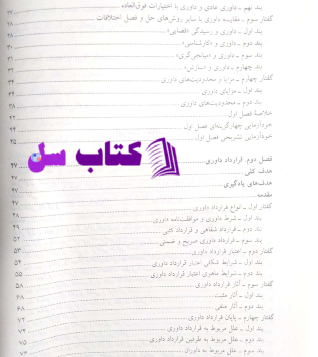 بند نهم ـ داوری عادی و داوری با اختیارات فوق‌العاده ۲۷
گفتار سوم ـ مقایسه داوری با سایر روش‌های حل و فصل اختلافات
بند اول ـ داوری و رسیدگی «قضایی»
بند دوم ـ داوری و «کارشناسی»
بند سوم ـ داوری و «میانجی‌گری»
بند چهارم ـ داوری و «سازش»
گفتار چهارم ـ مزایا و محدودیت‌های داوری
بند اول ـ مزایای داوری
بند دوم ـ محدودیت‌های داوری
خلاصهٔ فصل اول
خودآزمایی چهارگزینه‌ای فصل اول
خودآزمایی تشریحی فصل اول
کتاب سل
فصل دوم. قرارداد داوری ۴۷
هدف کلی ۴۷
هدف‌های یادگیری ۴۷
مقدمه ۴۷
گفتار اول ـ انواع قرارداد داوری
بند اول ـ شرط داوری و موافقت‌نامه داوری ۴۸
بند دوم ـ قرارداد شفاهی و قرارداد کتبی
بند سوم ـ قرارداد داوری صریح و ضمنی ۵۲
گفتار دوم ـ اعتبار قرارداد داوری ۵۳
بند اول ـ شرایط شکلی اعتبار قرارداد داوری ۵۴
بند دوم ـ شرایط ماهوی اعتبار قرارداد داوری ۵۵
گفتار سوم ـ آثار قرارداد داوری ۵۸
بند اول ـ آثار مثبت ۶۸
بند دوم ـ آثار منفی ۶۸
گفتار چهارم ـ پایان قرارداد داوری ۷۲
بند اول ـ علل مربوط به قرارداد داوری
بند دوم ـ علل مربوط به طرفین قرارداد داوری ۷۵
بند سوم ـ علل مربوط به داوران